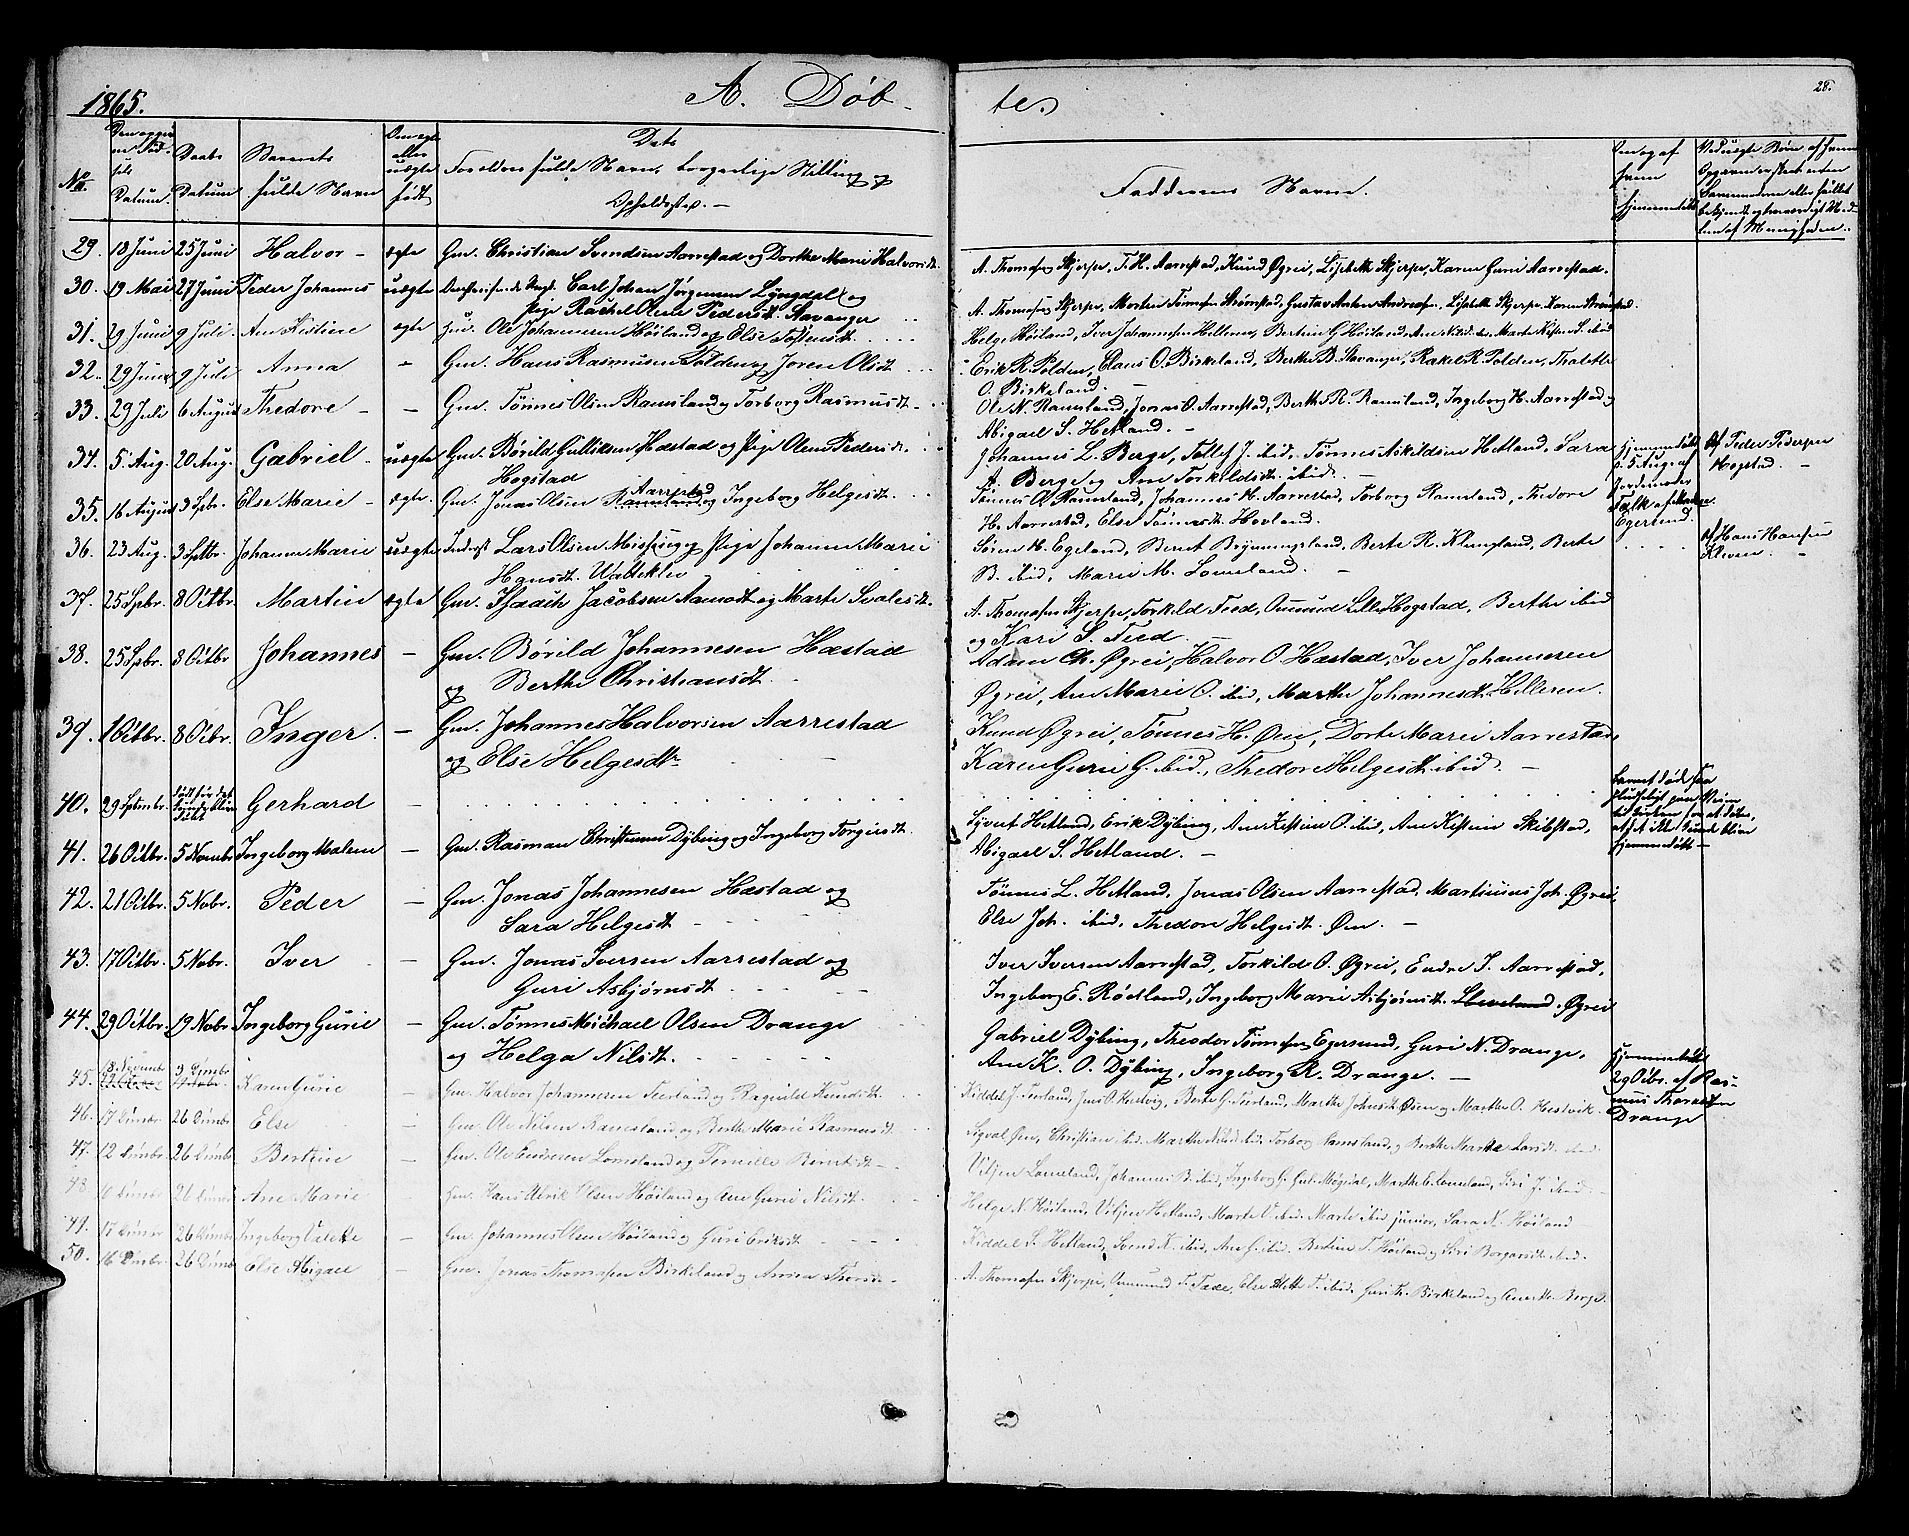 1865.
A. Døb-
tes
28.
No.
Datum.
Daabs Datum
Barnets fulde Navn
ægte eller uægte født
Dets Forældres fulde Navn, borgerlige Stilling og Opholdssted. —
Faddernes Navne.
hjemmedøbt
29. 18 Juni 25 Juni Halvor - ægte Gm. Christian Svendsen Aarrestad og Dorthe Marie Halvorsdt.
A. Thomsen Skjerpe, T. H. Aarrestad, Knud Øgrei, Lisbeth Skjerpe, Karen Guri Aarrestad.
30. 19 Mai 27 Juni Peder Johannes uægte Carl Johan Jørgensen Lyngdal og
Pige Rachel Oline Pedersdt. Stavanger
A. Thomsen Skjerpe, Morten Tønnesen Strømstad, Gustav Anton Andreasen, Lisbeth Skjerpe, Karen Strømstad.
31. 29 Juni 9 Juli Ane Kistine ægte Gm. Ole Johannesen Høiland og Else Tostensdt.
Helge Høiland, Iver Johannesen Helleren, Bertine G. Høiland, Ane Nilsd. ibd. Marte Kistine S. ibid
32. 29 Juni 9 Juli Anna - Gm. Hans Rasmusen Polden og Joren Olsdt.
Erik R. Polden, Claus O. Birkeland, Berthe B. Stavanger, Rakel R. Polden, Thalette
O. Birkeland.
33. 29 Juli 6 August Thedore - - Gm. Tønnes Olsen Ramsland og Torborg Rasmusdt.
Ole N. Ramsland, Jonas O. Aarrestad, Berthe R. Ramsland, Ingeborg H. Aarrestad og
Abigael S. Hetland. -
34. 5 Aug. 20 Aug. Gabriel - uægte Gm. Børild Gullicksen Hæstad og Pige Olene Pedersdt.
Hogstad
Johannes L. Berge, Tollef J. ibid, Tønnes Askildsen Hetland, Sara
A. Berge og Ane Torkildsdt. ibid.
hjemmedøbt
d. 5 Aug. af
Jordemoder
Falk af
Egersund.
Af Peder Pedersen
Hogstad.
35. 16 August 3 Spbr. Else Marie - ægte. Gm. Jonas Olsen Ramsland Aarrestad og Ingeborg Helgesdt.
Tønnes O. Ramsland, Johannes H. Aarrestad, Torborg Ramsland, Thedore
H. Aarrestad, Else Tønnesdt. Hovland.
36. 23 Aug. 3 Sptbr. Johanne Marie uægte Inderst Lars Olsen Missing og Pige Johanne Marie
Hansdt. Watteklev
Søren H. Egeland, Bernt Brynningsland, Berte R. Klungland, Berte
B. ibid, Marie M. Lomeland. -
Af Hans Hansen
Kleven.
37. 25 Spbr. 8 Octbr. Martin ægte Gm. Isach Jacobsen Aamodt og Marte Svalesdt.
A. Thomsen Skjerpe, Torkild Teed, Omund Lille Hogstad, Berthe ibid
og Kari S. Teed.
38. 25 Spbr. 8 Octbr Johannes - Gm. Børild Johannesen Hæstad
og Berthe Christiansdt.
Adam Ch. Øgrei, Halvor O. Hæstad, Iver Johannesen
Øgrei, Ane Marie O. ibid, Marthe Johannesdt. Helleren.
39. 1 Octbr. 8 Ocbr. Inger. - Gm. Johannes Halvorsen Aarrestad
og Else Helgesdtr.
Knud Øgrei, Tønnes H. Øen, Dorte Marie Aarrestad,
Karen Gurie G. ibid., Thedore Helgesdt. ibid. -
40. 29 Sptmbr. Gerhard -
41. 26 Octbr. 5 Novmbr Ingeborg Malene - Gm. Rasmus Christensen Dybing og Ingeborg Torgersdt.
Syvert Hetland, Erik Dybing, Ane Kistine O. ibid, Ane Kistine Skibstad,
Abigael S. Hetland. -
42. 21 Octbr. 5 Nobr. Peder - Gm. Jonas Johannesen Hæstad og
Sara Helgesdt -
Tønnes L. Hetland, Jonas Olsen Aarrestad, Martinius Joh. Øgrei,
Else Joh. ibid, Thedore Helgesdt. Øen. -
43. 17 Octbr. 5 Nobr. Iver - Gm. Jonas Iversen Aarrestad og
Guri Asbjørnsdt.
Iver Iversen Aarrestad, Torkild O. Øgrei, Endre I. Aarrestad,
Ingeborg E. Rødland, Ingeborg Marie Asbjørnsdt. Øgrei
44. 29 Octbr. 19 Nobr Ingeborg Gurie - Gm. Tønnes Michael Olsen Drange
og Helga Nilsdt.
Gabriel Dybing, Theodor Tønnesen Egersund, Guri N. Drange,
Ane K. O. Dybing, Ingeborg R. Drange. -
hjemmedøbt
29 Ocbr. af Ras-
mus Thorsen
Drange
45. 18 Novembr 3 Decmbr Karen Gurie - Gm. Halvor Johannesen Teerland og Ragnild Knudsdt.
Kiddel J. Teerland, Jens O. Hestvig, Berte G. Teerland, Marthe Johnsdt. Øsen og Marthe O. Hestvik.
46. 17 Decmbr 26 Decmbr Else - Gm. Ole Nilsen Ramsland og Berthe Marie Rasmusdt.
Sigvald Øen, Christian ibid. Marthe Nilsd. ibid, Torborg Ramsland, og Berthe Marthea Larsdt. ibid.
47. 12 Decmbr 26 Decmbr Bertine - Gm. Ole Endresen Lomeland og Pernille Berntsdt -
Viljen Lomeland, Johannes B. ibid, Ingeborg G. Møgedal, Marthe E. Lomeland, Siri J. ibid.
48 10 Decmbr 26 Decmbr Ane Marie - Gm. Hans Ulrik Olsen Høiland og Ane Gurie Nilsdt.
Helge N. Høiland, Viljen Hetland, Marte V. ibid. Marte ibid junior, Sara N. Høiland
49. 17 Decmbr 26 Decmbr Ingeborg Valette - Gm. Johannes Olsen Høiland og Guri Eriksdt
Kiddel S. Hetland, Svend K. ibid, Ane G. ibid. Bertine T. Høiland og Siri Borgarsdt. ibid.
50. 16 Decmbr 26 Decmbr Else Abigael - Gm. Jonas Thomsen Birkeland og Anna Thorsdt -
A. Thomsen Skjerpe, Omund T. Tæe, Else Mette T. ibid. Guri Tr. Birkeland og Ane Berge.